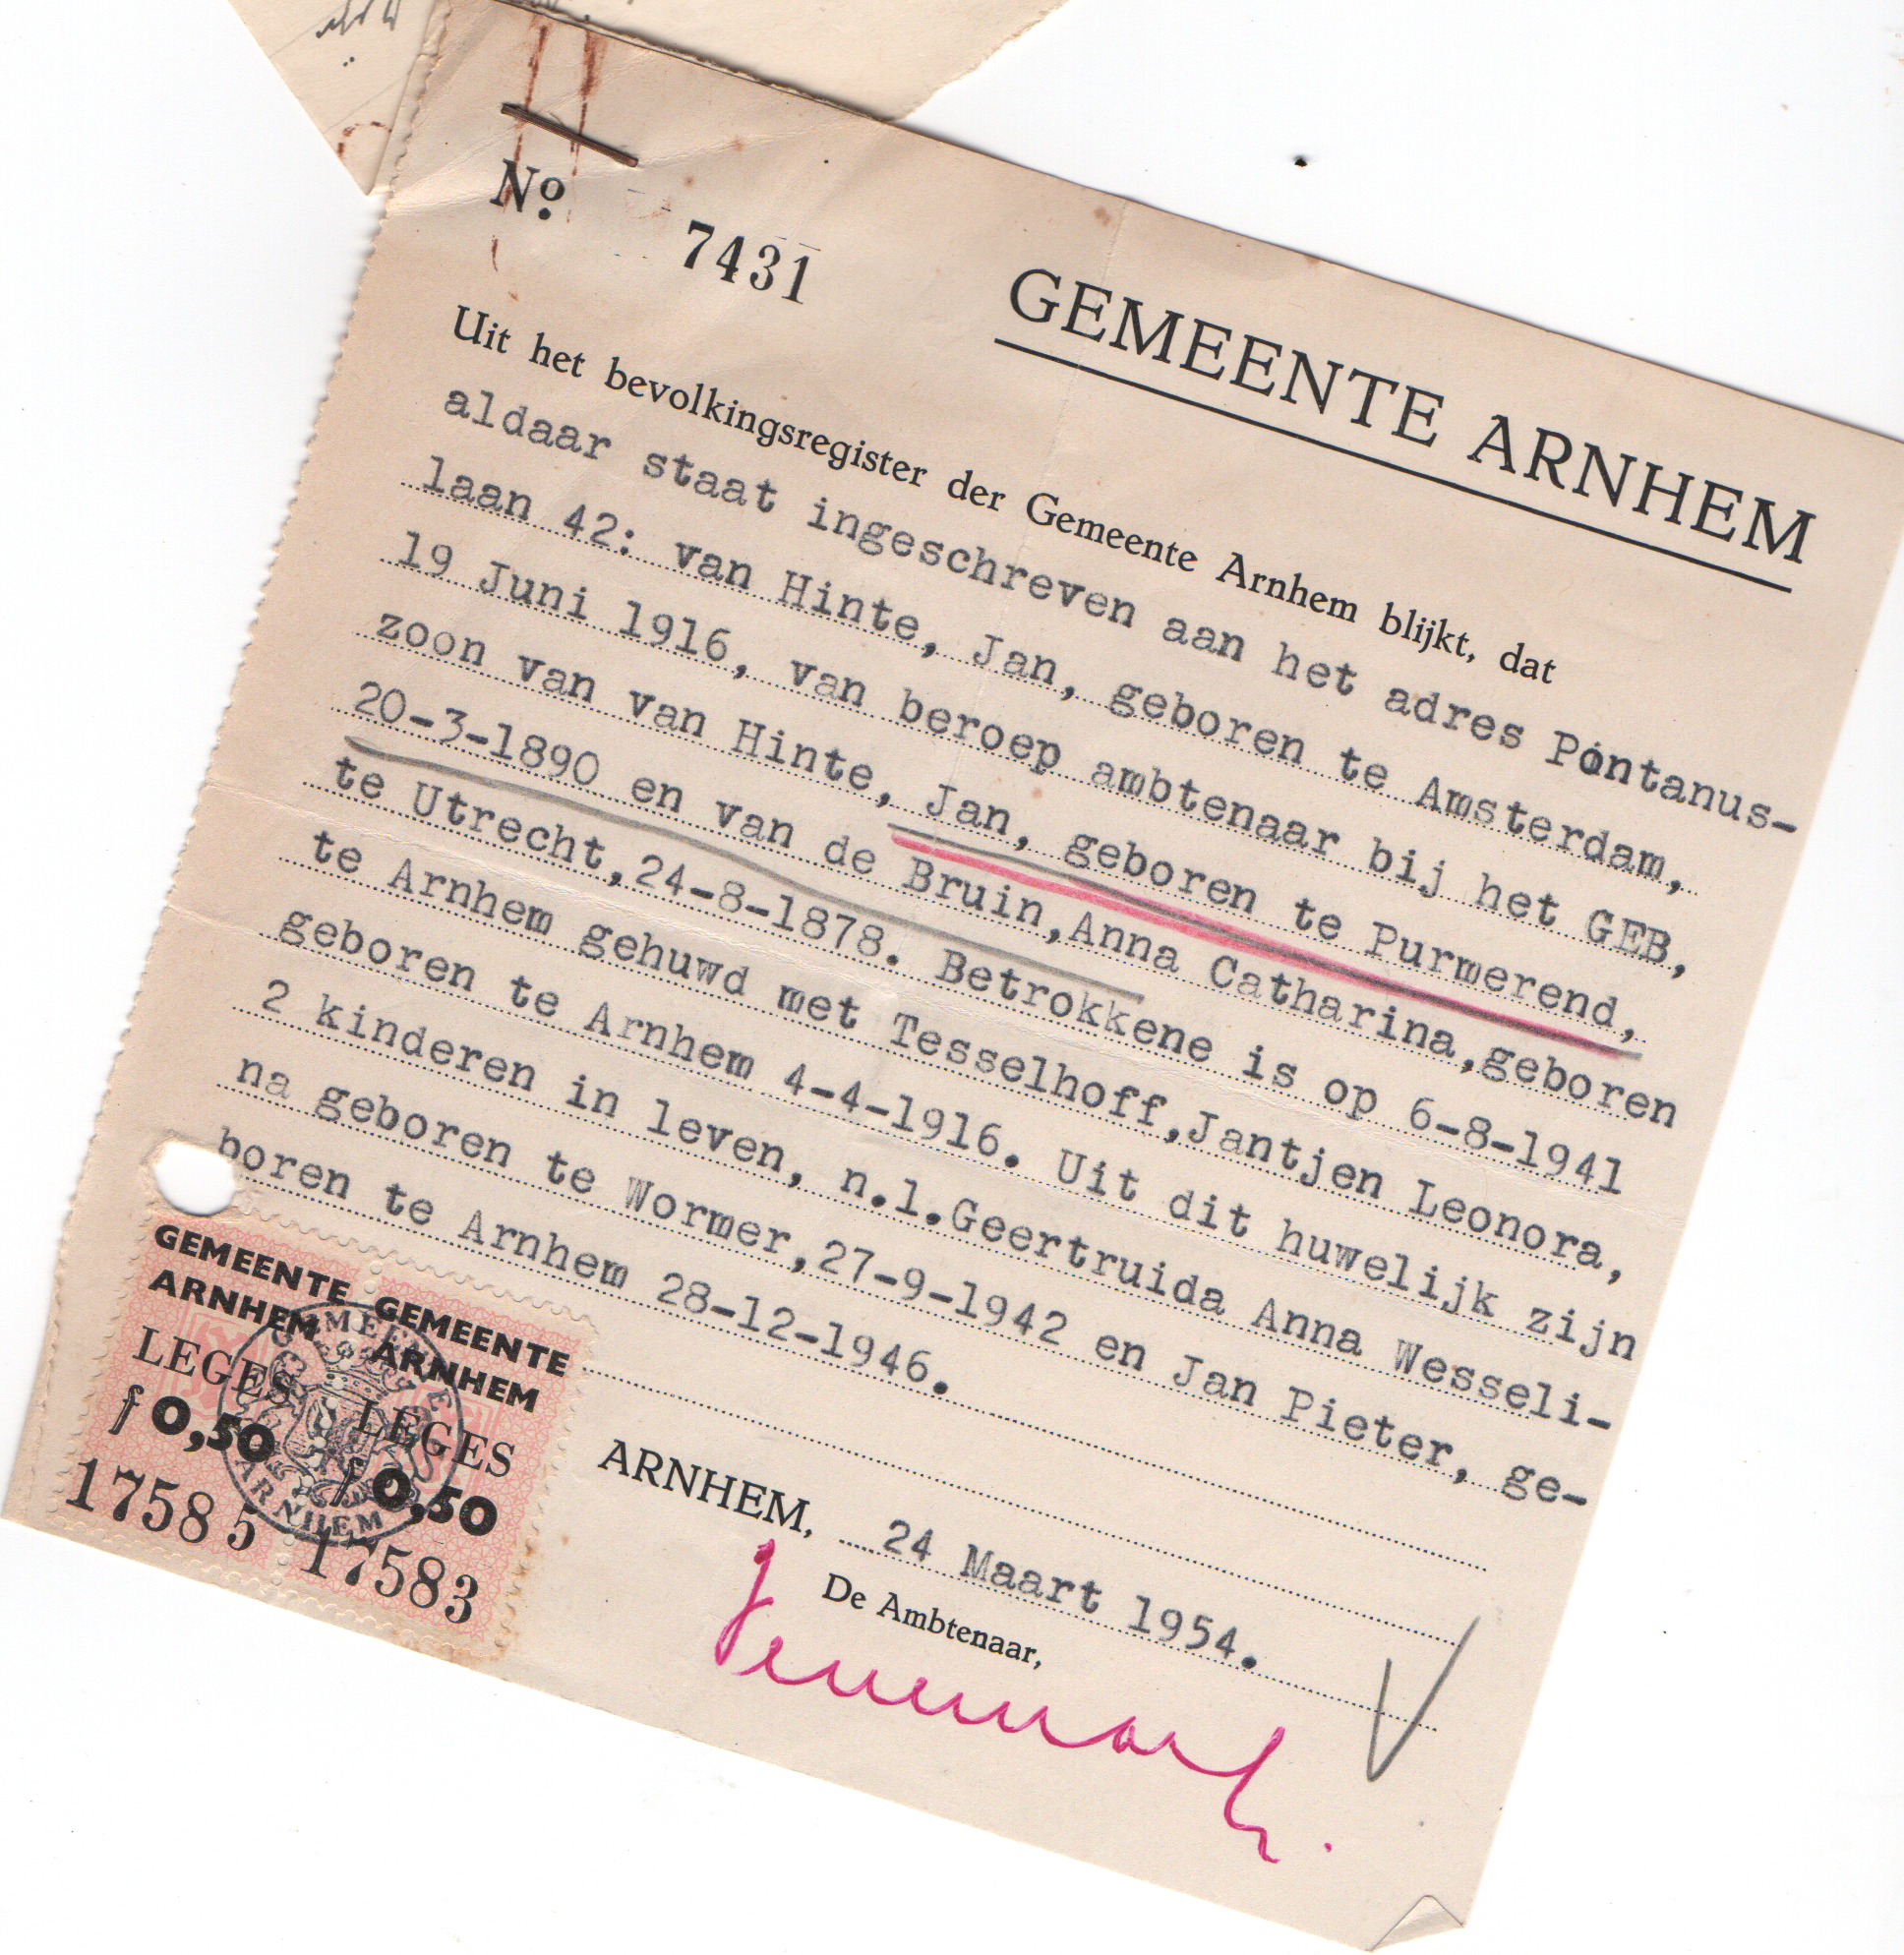 Nº 7431
GEMEENTE ARNHEM
Uit het bevolkingsregister der Gemeente Arnhem blijkt, dat
aldaar staat ingeschreven aan het adres Pontanus-
laan 42: van Hinte, Jan, geboren te Amsterdam,
19 Juni 1916, van beroep ambtenaar bij het GEB,
zoon van van Hinte, Jan, geboren te Purmerend,
20-3-1890 en van de Bruin,Anna Catharina,geboren
te Utrecht,24-8-1878. Betrokkene is op 6-8-1941
te Arnhem gehuwd met Tesselhoff,Jantjen Leonora,
geboren te Arnhem 4-4-1916. Uit dit huwelijk zijn
2 kinderen in leven, n.l.Geertruida Anna Wesseli-
na geboren te Wormer,27-9-1942 en Jan Pieter, ge-
boren te Arnhem 28-12-1946.
GEMEENTE
ARNHEM
LEGES
f 0,50
17585
GEMEENTE
ARNHEM
LEGES
f 0,50
17583
GEMEENTE
ARNHEM
ARNHEM, 24 Maart 1954.
De Ambtenaar,